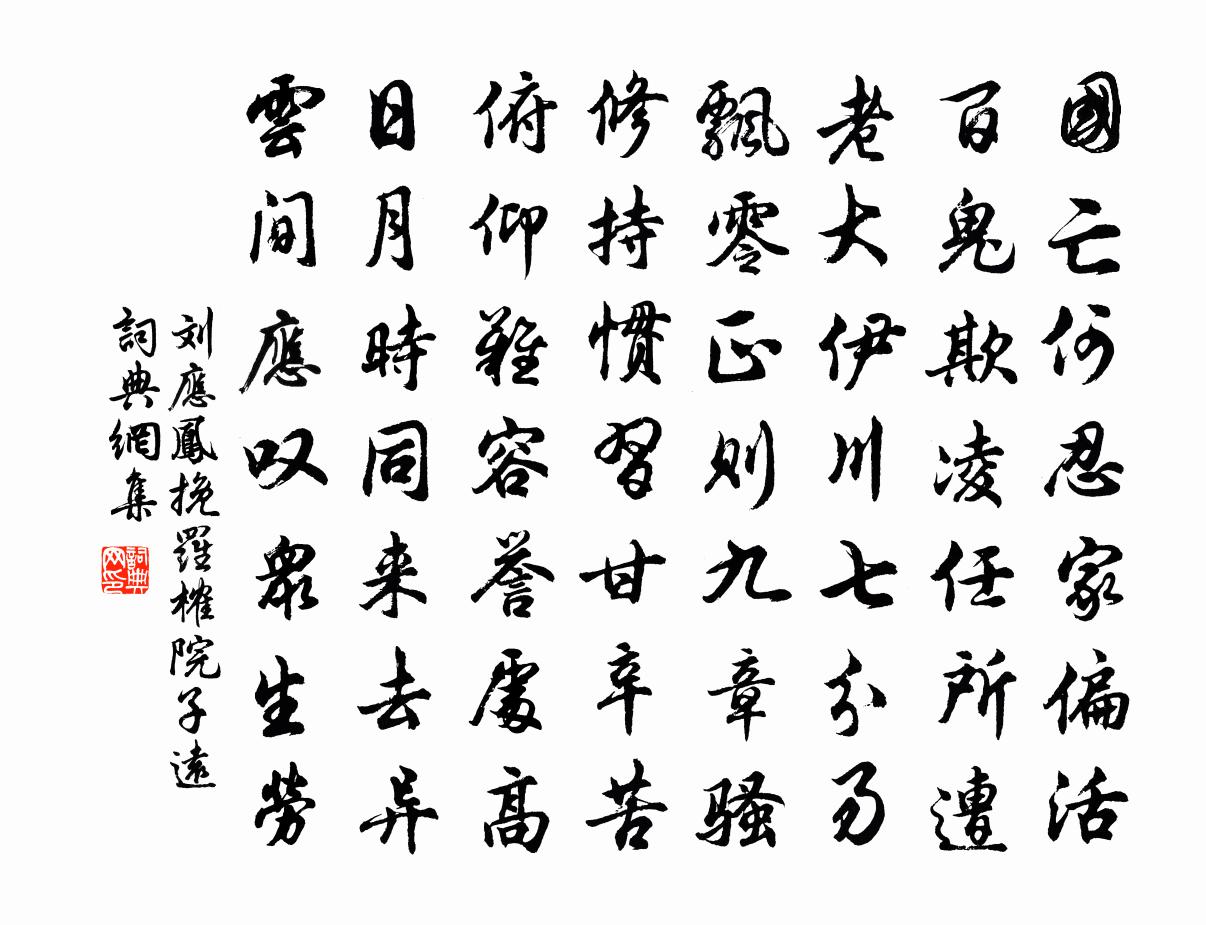 國亡何忍家偏活
百鬼欺凌任所遭
老大伊川七分易
飄零正則九章騷
修持慣習甘辛苦
俯仰難容譽處高
日月時同来去异
雲間應叹眾生勞
刘應鳳挽羅榷院子遠
詞典網集
詞典网印